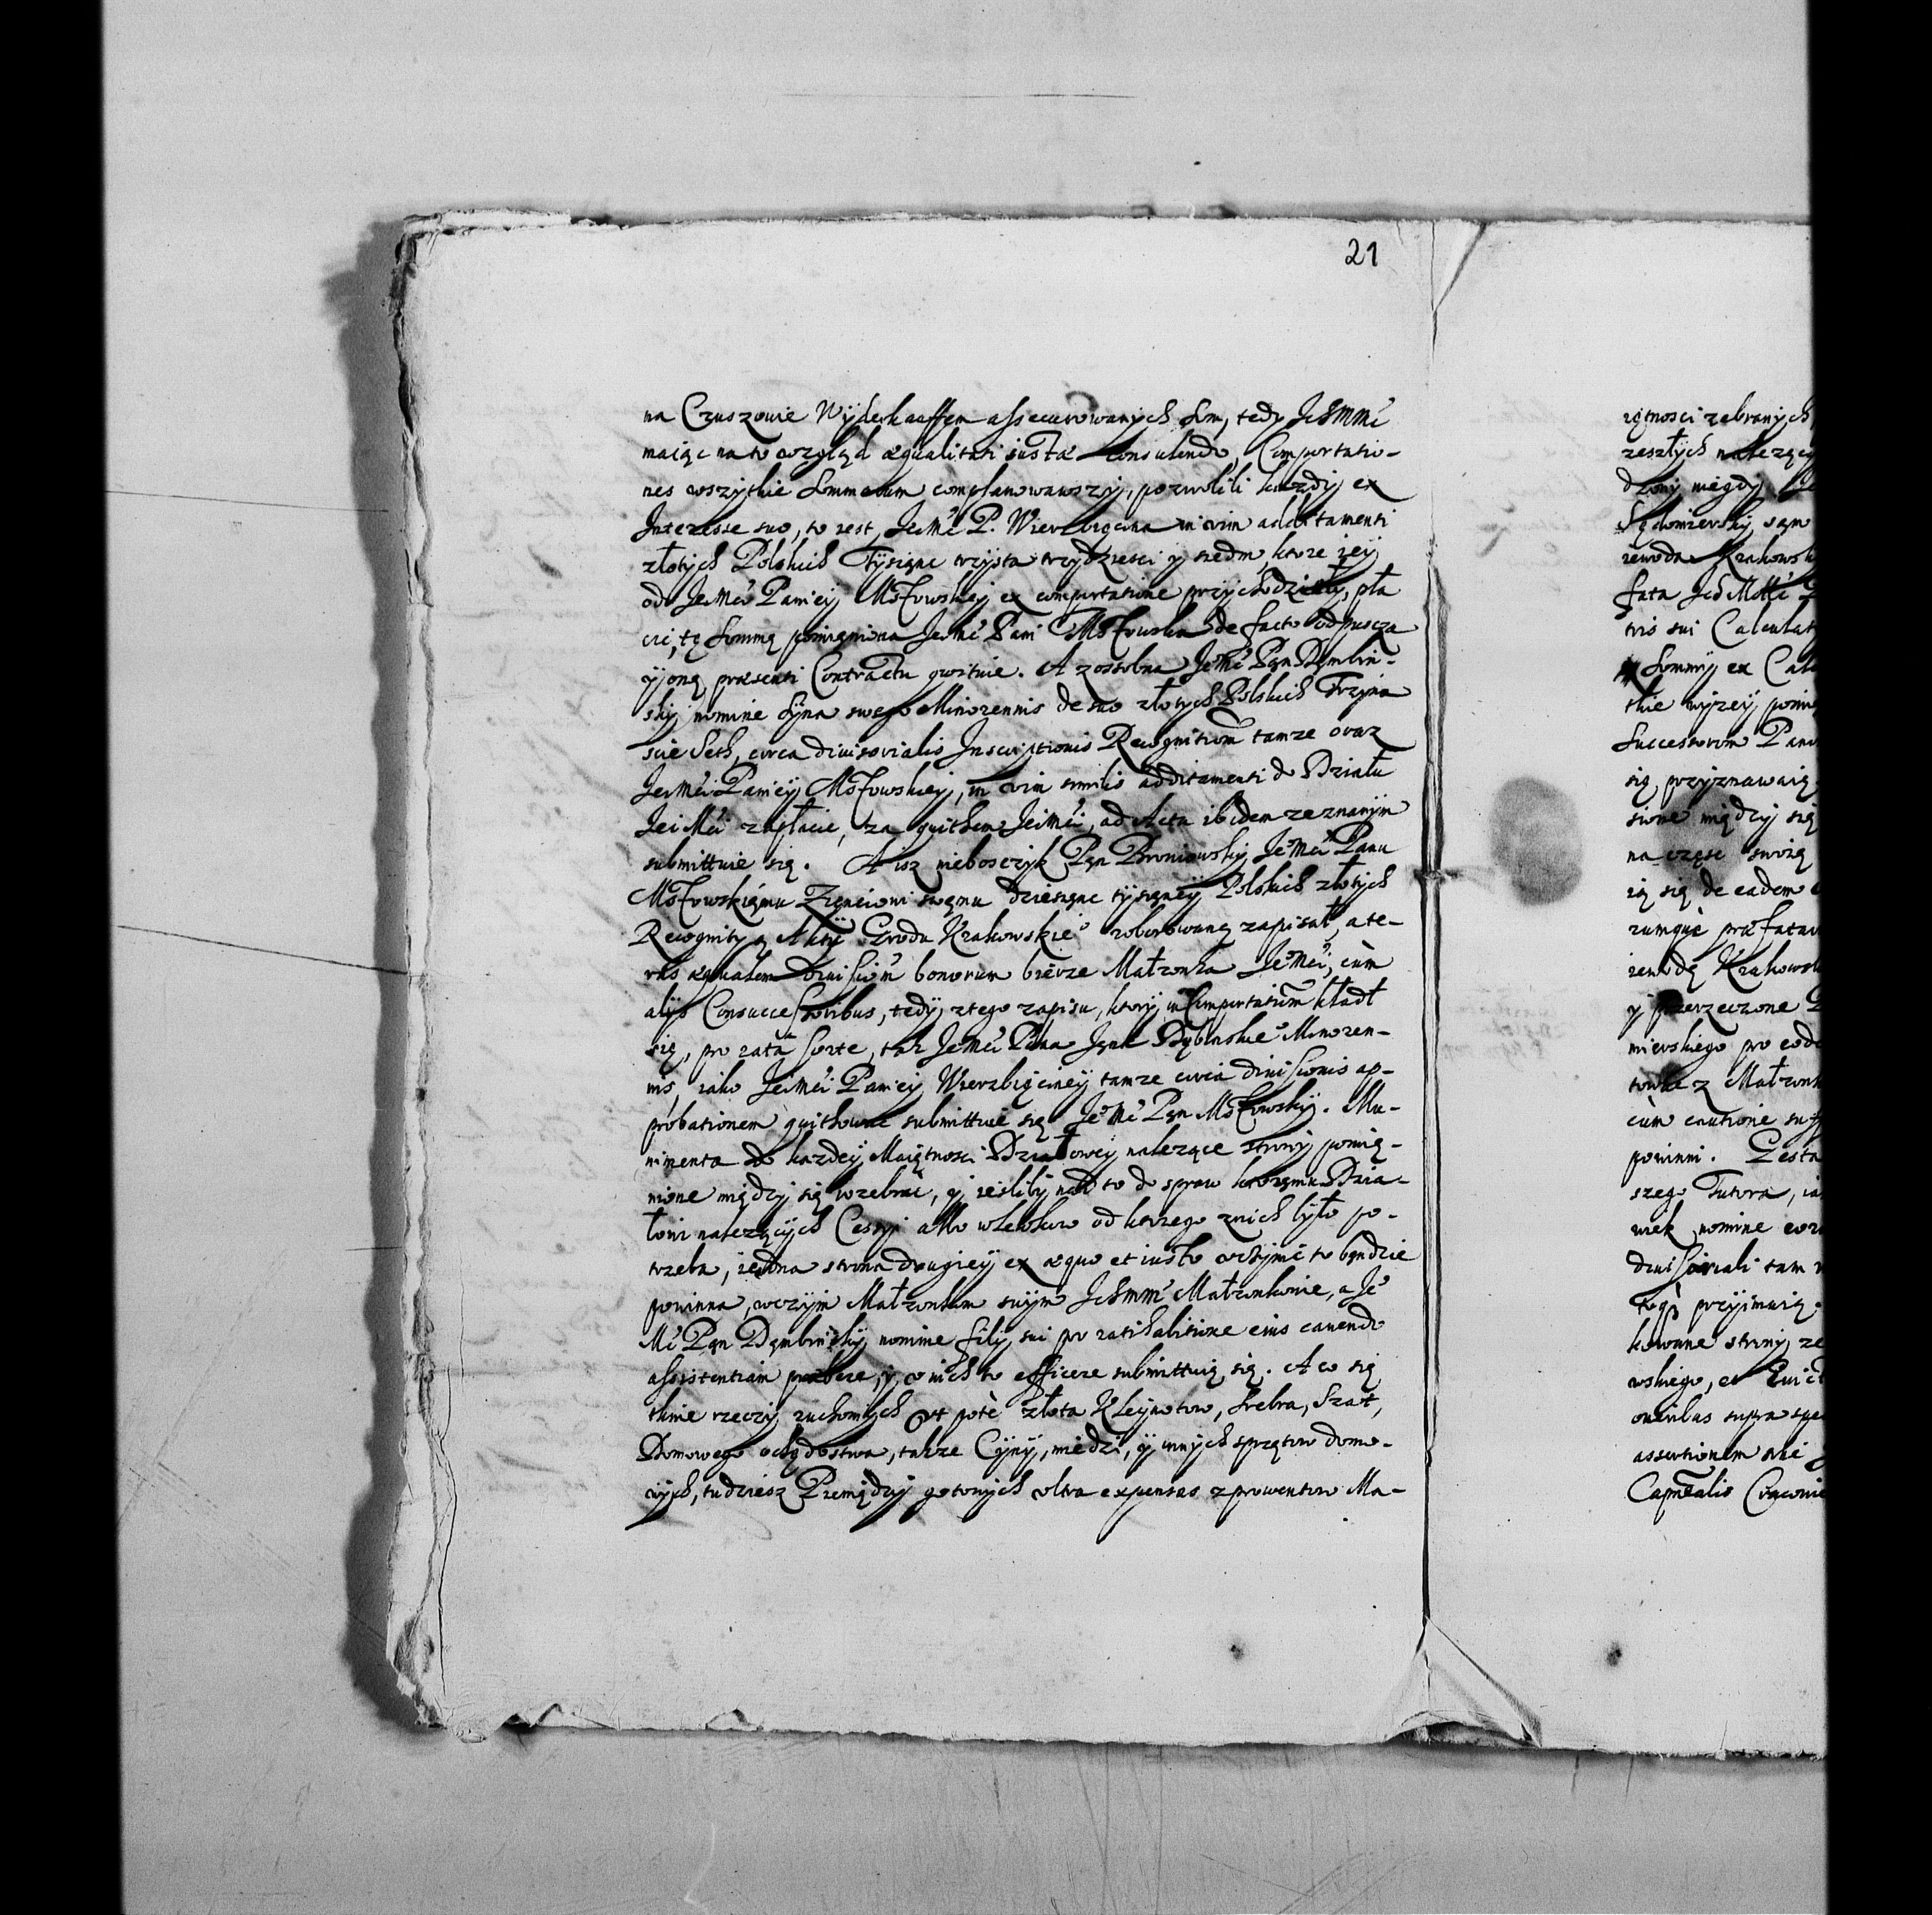 21
na Czuszowie Wyderkaffem assecurowanych Sum, tedy IchMMći
maiąc na to wzgląd æqualitati iustæ consulendo, Comportatio-
nes wszytkie Summarum complanowawszy, pozwolili kazdy ex
Interesse suo, to iest, JeiMći P. Wierzbięcina in vim additamenti
złotych Polskich Tysiąc trzysta trzydziesci y siedm, ktore iey
od JeiMći Paniey Mstowskiey ex comportatione przychodziły, pła
ci, tę Sommę pomieniona JeiMć Pani Mstowska de facto odpuscza
y oną præsenti Contractu qwituie. A zosobna JeoMć Pan Dęmbin-
sky nomine syna swego Minorennis de suo złotych Polskich Trzyna
scie Seth, circa divisorialis Inscriptionis Recognitionem tamze oraz
JeiMći Paniey Mstowskiey, in vim similis additamenti do Działu
JeiMći zapłacie, za quithem JeiMći, ad Acta ibidem zeznanym
submittuie się. A isz nieboszczyk Pan Broniowsky JeoMći Panu
Mstowskiemu Zięciowi swemu dziesiąc tysięcy Polskich złotych
Recognitią Akty Grodu Krakowskieo roborowaną zapisał, a te-
ras æqualem divisionem bonorum bierze Małzonka JeoMći, cum
alijs Consuccessoribus, tedy z tego zapisu, ktory in Comportationem kładł
się, pro rata sorte, tak JeoMći Pana Jana Dębinskieo Minoren-
nis, iako JeiMći Paniey Wierzbięciney tamze circa divisionis ap-
probationem quithowac submittuie się JeoMć Pan Mstowsky. Mu-
nimenta do kazdey Maiętnosci Działowey nalezące strony pomię-
nione między się rozebrać, y ieśliby nad to do spraw ktoremu Dzia-
łowi nalezących Cessyi albo wlewkow od ktorego z nich było po-
trzeba, iedna strona drugiey ex æquo et iusto uczynić to bęndzie
powinna, w czym Małzonkom swym IchMMć Małzonkowie, a Jeo
Mć Pan Dęmbinsky nomine filij sui pro ratihabitione eius cavendo
assistentiam præbere, y o nich to efficere submittuią się. A co się
tknie rzeczy ruchomych ut potè złota Kleynotow, srebra, Szat,
Domowego ochędostwa, takze Cyny, miedzi, y innych sprzętow domo-
wych, tudziesz Pieniędzy gotowych ultra expensas z prowentow Ma-
iętnosci zebranych
zeszłych nalezący
dzony niegdy
Sędomiersky
iewoda Krakowsk
fata
tris sui Calculat
Sommy ex Calc
tkie wyzey pomie
Successorom Pano
się przyznawaią
sione między się
na częsc swoię
ią się de eadem
rumque præfatar
iewodę Krakowsk
y przerzeczone
mierskiego pro eode
towke z Małzonk
cum cautione
powinni.
szego Tutora, ia
wiek nomine eor
divisoriali tam
przyimuią
kowane strony ze
wskiego, et
oneribus supra spe
assertionem
Capnealis Cracovie